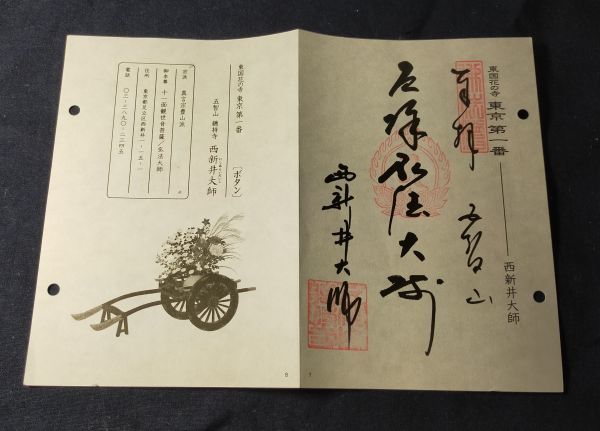 東国花の寺 東京第一番 西新井大師
奉拝 五智山
厄除弘法大師
西新井大師
7
東国花の寺 東京第一番 〔ボタン〕
五智山 總持寺 西新井大師
宗派 真言宗豊山派
御本尊 十一面観世音菩薩/弘法大師
住所 東京都足立区西新井一-一五-一
電話 〇三-三八九〇-二三四五
8